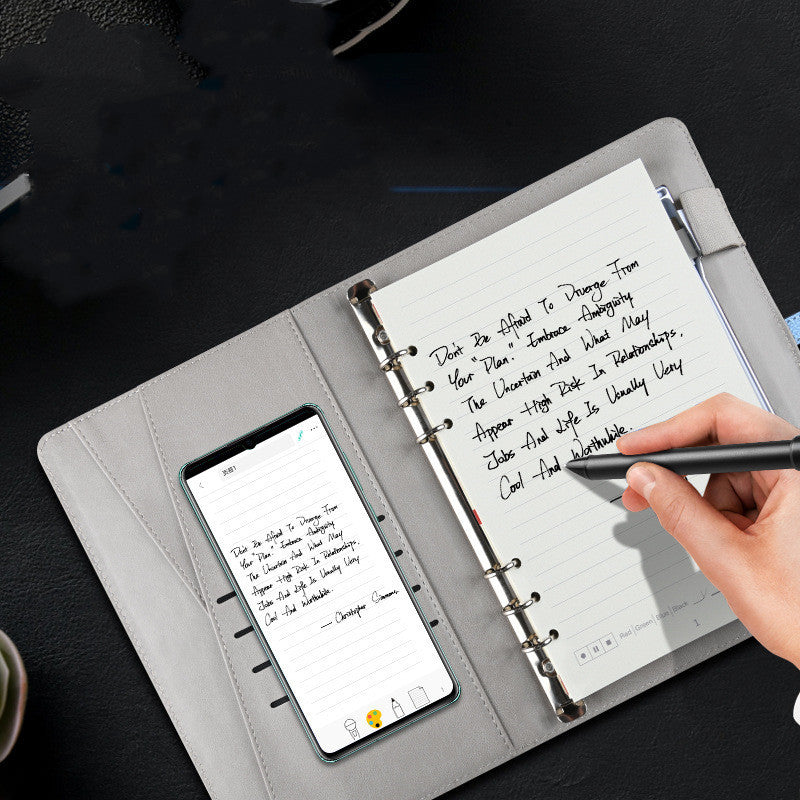 Don't Be Afraid To Diverge From
Your "Plan." Embrace Ambiguity
The Uncertain And What May
Appear High Risk In Relationships,
Jobs And Life Is Usually Very
Cool And Worthwhile.
Red | Green | Blue | Black
1
Don't Be Afraid To Diverge From
Your "Plan." Embrace Ambiguity
The Uncertain And What May
Appear High Risk In Relationships,
Jobs And Life Is Usually Very
Cool And Worthwhile.
— Christopher Simmons